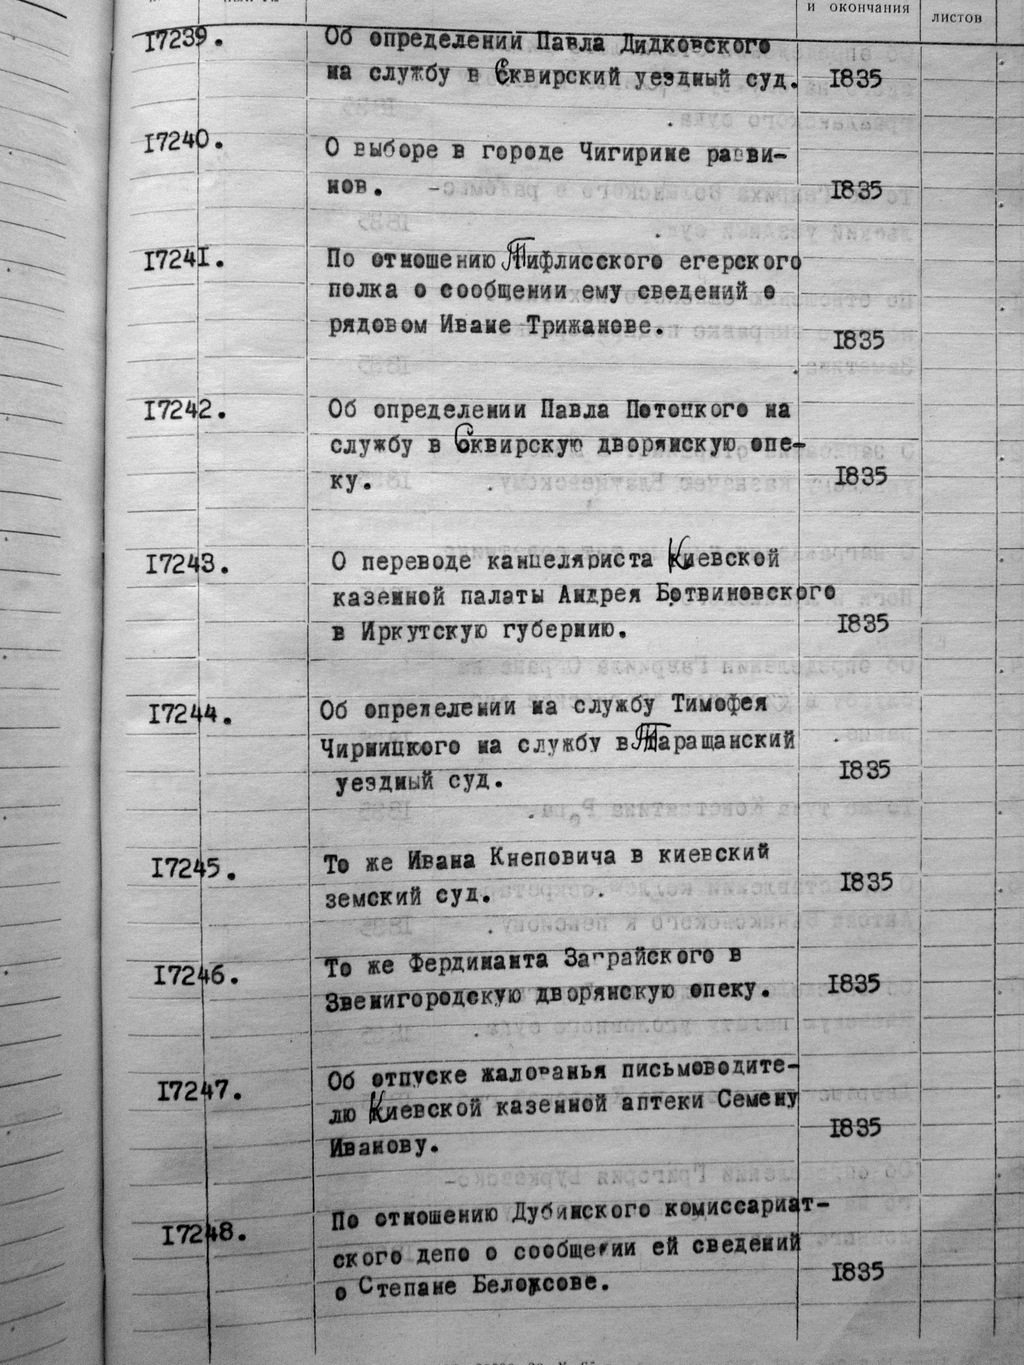 и окончания
листов
17239.
Об определении Павла Дидковского
на службу в Сквирский уездный суд. 1835
17240.
О выборе в городе Чигирине раввинов. 1835
17241.
По отношению Тифлисского егерского
полка о сообщении ему сведений о
рядовом Иване Трижанове.
1835
17242.
Об определении Павла Потоцкого на
службу в Сквирскую дворянскую опе-
ку.
1835
17243.
О переводе канцеляриста Киевской
казенной палаты Андрея Ботвиновского
в Иркутскую губернию.
1835
17244.
Об определении на службу Тимофея
Чирницкого на службу в Таращанский
уездный суд.
1835
17245.
То же Ивана Кнеповича в киевский
земский суд.
1835
17246.
То же Фердинанта Заграйского в
Звенигородскую дворянскую опеку.
1835
17247.
Об отпуске жалованья письмоводите-
лю Киевской казенной аптеки Семену
Иванову.
1835
17248.
По отношению Дубинского комиссариат-
ского депо о сообщении ей сведений
о Степане
1835